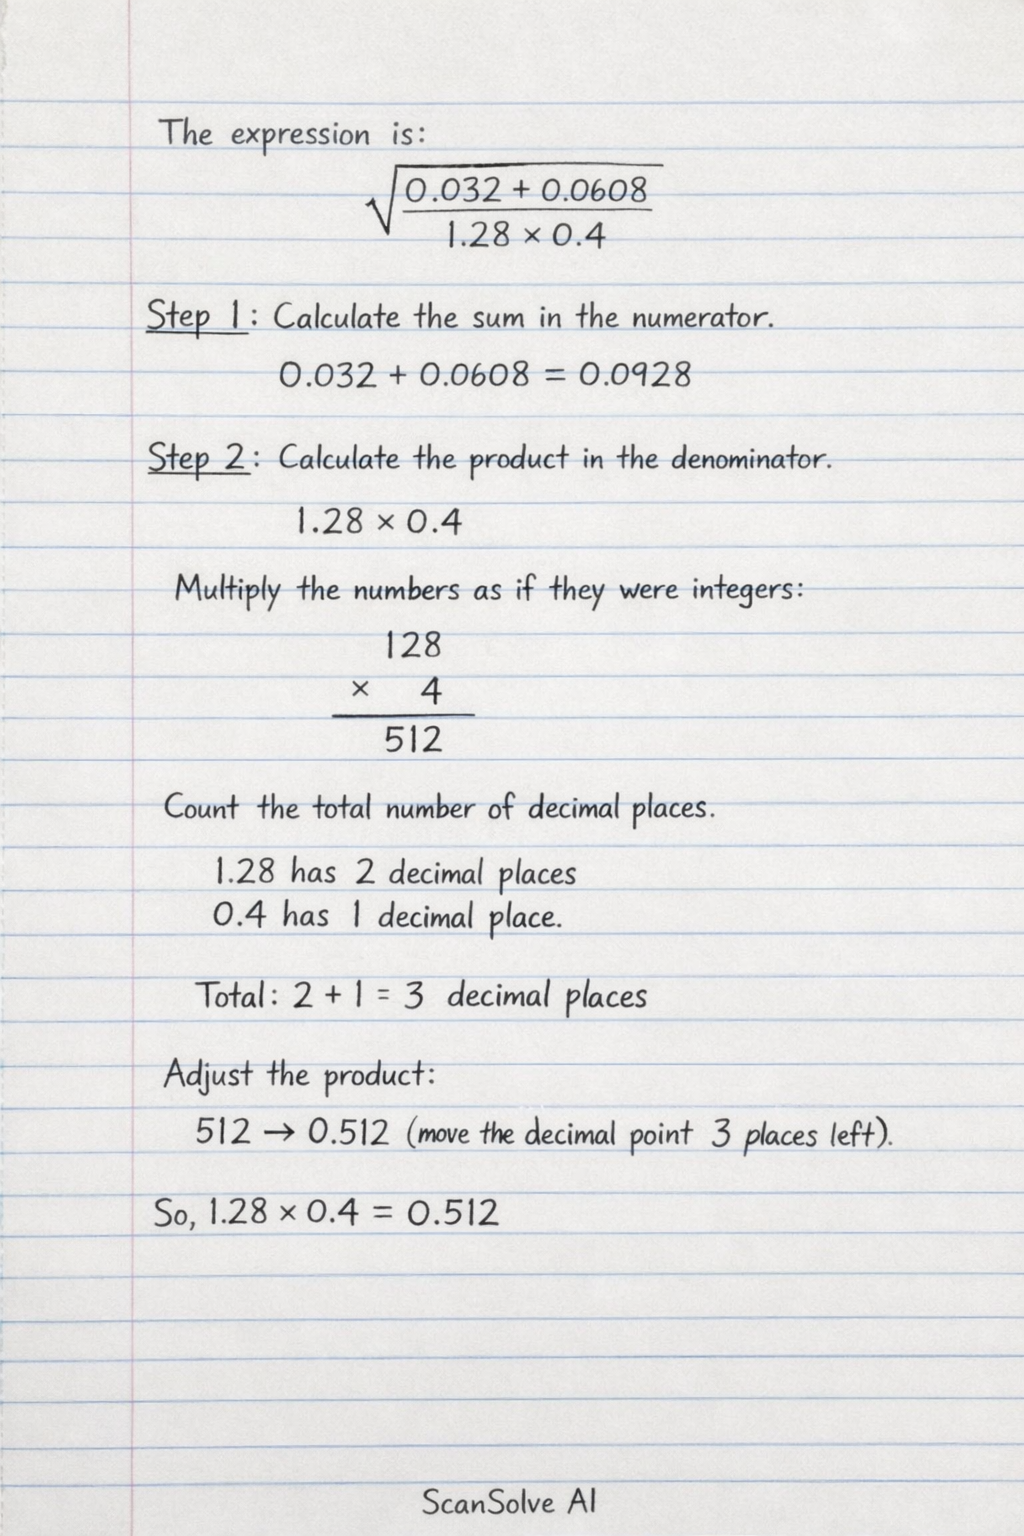 The expression is:
√(0.032 + 0.0608
1.28 × 0.4)
Step 1: Calculate the sum in the numerator.
0.032 + 0.0608 = 0.0928
Step 2: Calculate the product in the denominator.
1.28 × 0.4
Multiply the numbers as if they were integers:
128
× 4
512
Count the total number of decimal places.
1.28 has 2 decimal places
0.4 has 1 decimal place.
Total: 2 + 1 = 3 decimal places
Adjust the product:
512 → 0.512 (move the decimal point 3 places left).
So, 1.28 × 0.4 = 0.512
ScanSolve AI